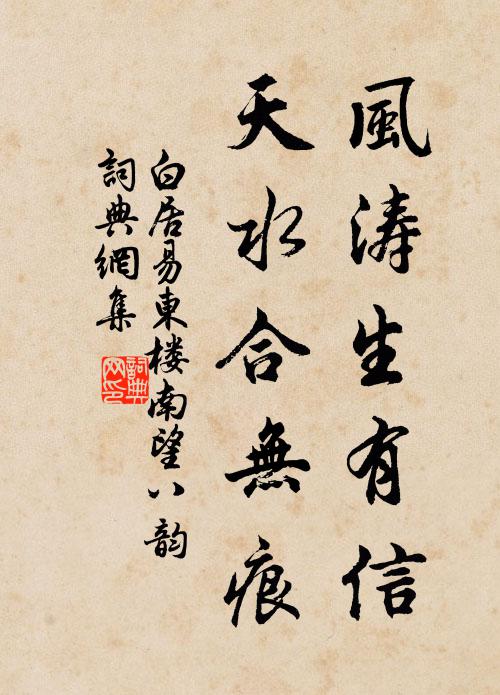 風涛生有信
天水合無痕
白居易東楼南望八韵
詞典網集
詞典
网印